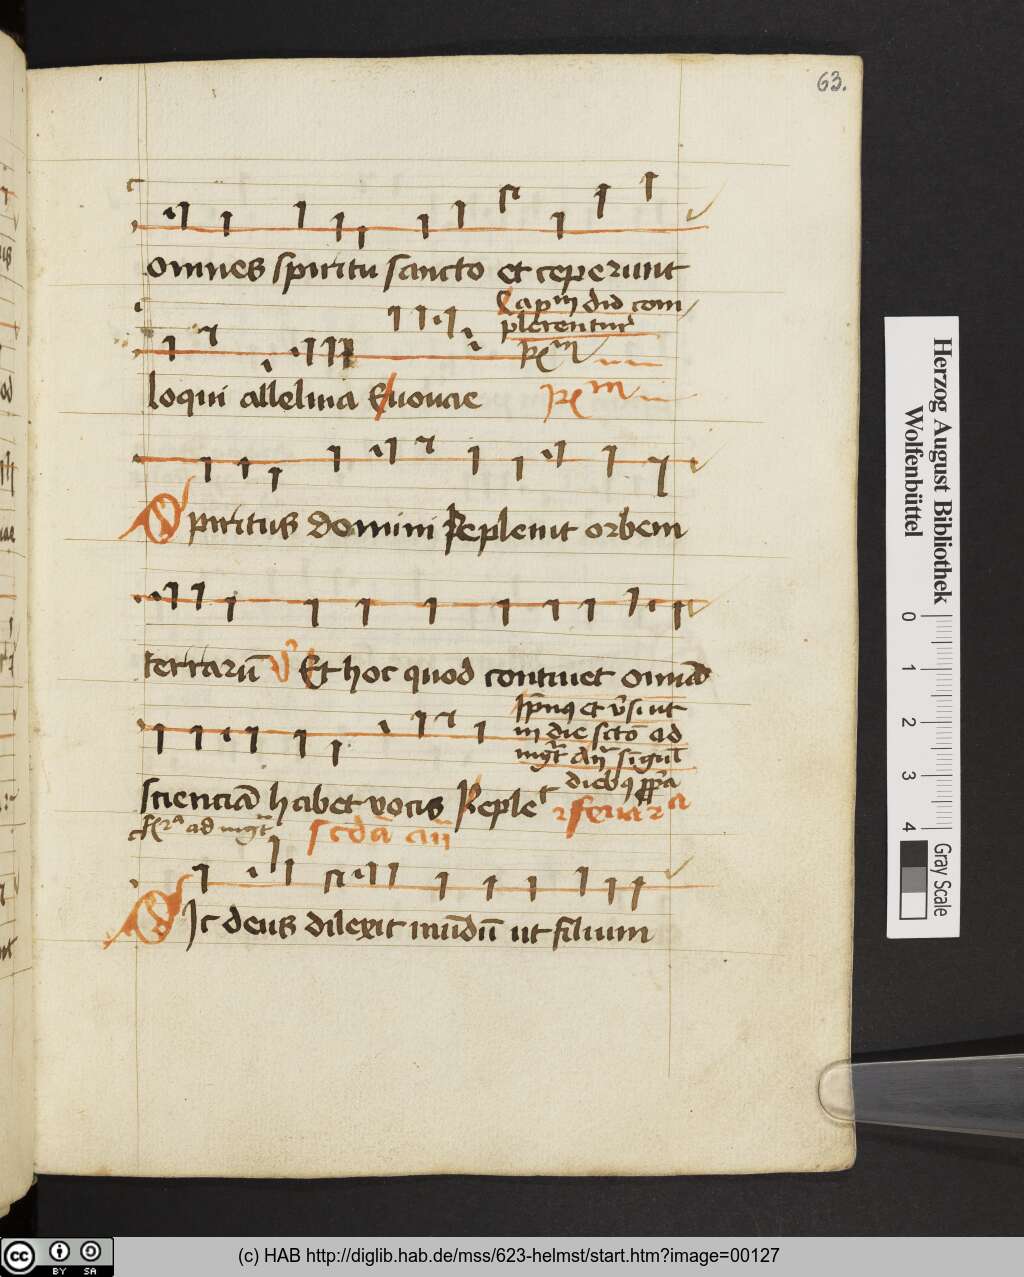 63.
omnes spiritu sancto et ceperunt
Capm did com
plerentur
loqui alleluia Euouae
Spiritus domini Repleuit orbem
terrarū V Et hoc quod continet omniā
Ipnus et vsiut
in die scto ad
scienciā habet vocis Reple
diebus
ad mgt Scda añ
Sic deus dilexit mūdū ut filium
Herzog August Bibliothek
Wolfenbüttel
0 1 2 3 4
Gray Scale
cc BY SA
(c) HAB http://diglib.hab.de/mss/623-helmst/start.htm?image=00127